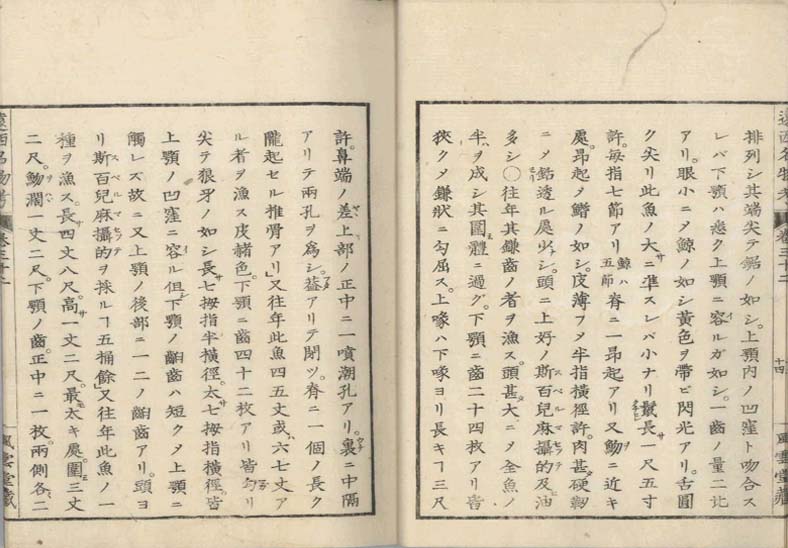 排列シ其端尖テ鋸ノ如シ。上顎内ノ凹窪ト吻合ス
レバ下顎ハ悉ク上顎ニ容ルガ如シ。一齒ノ量二比
アリ。眼小ニメ鯨ノ如シ黄色ヲ帶ビ閃光アリ。舌圓
ク尖リ此魚ノ大サニ準スレバ小ナリ鬣長一尺五寸
許。毎指七節アリ鯨ハ五節脊ニ一昂起アリ又魩ニ近キ
處。昂起メ鰭ノ如シ。皮薄フメ半指横徑許。肉甚硬韌
ニメ銛透ル處少シ。頭ニ上好ノ斯百兒麻攝的及油
多シ〇往年其鎌齒ノ者ヲ漁ス。頭甚大ニメ全魚ノ
半ヲ成シ其圍體ニ過グ。下顎ニ齒二十四枚アリ皆
狹クメ鎌狀ニ勾屈ス。上喙ハ下喙ヨリ長キヿ三尺
遠西名物考 卷三十二 十四 風雲堂藏
許。鼻端ノ差上部ノ正中ニ一噴潮孔アリ。裏ニ中隔
アリテ兩孔ヲ爲シ。葢アリテ閉ツ。脊ニ一個ノ長ク
隴起セル椎骨アリ」又往年此魚四五丈或六七丈ア
ル者ヲ漁ス皮赭色。下顎ニ齒四十二枚アリ皆勾リ
尖テ狼牙ノ如シ長サ七按指半横徑。太サ七按指横徑。皆
上顎ノ凹窪ニ容ル但下顎ノ齨齒ハ短クメ上顎ニ
觸レズ故ニ又上顎ノ後部ニ一二ノ齨齒アリ。頭ヨ
リ斯百兒麻攝的ヲ採ルヿ五桶餘」又往年此魚ノ一
種ヲ漁ス。長四丈八尺。高サ一丈二尺。最太キ處。圍三丈
二尺。魩濶一丈二尺。下顎ノ齒。正中ニ一枚。兩側各二
遠西名物考 卷三十二 風雲堂藏